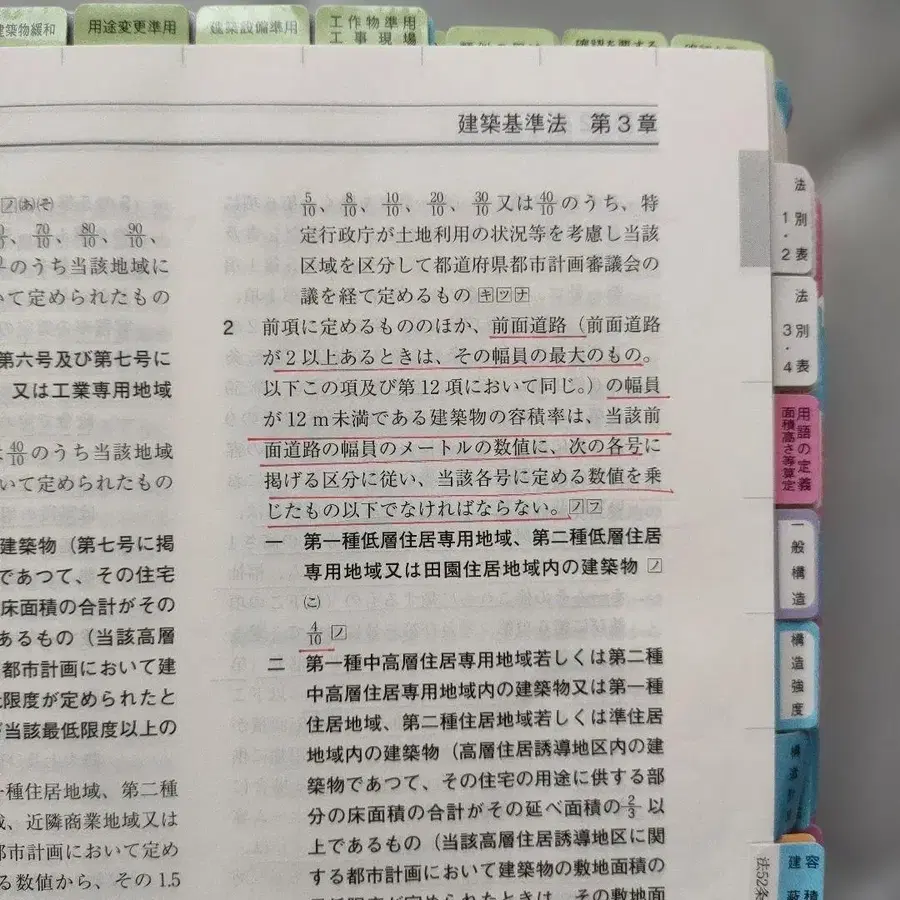 建築物緩和
用途変更準用
建築設備準用
工作物準用
工事現場
建築基準法 第3章
ノ㋔㋞
70/10、80/10、90/10、
のうち当該地域に
いて定められたもの
第六号及び第七号に
又は工業専用地域
40/10のうち当該地域
いて定められたもの
建築物（第七号に掲
であつて、その住宅
床面積の合計がその
あるもの（当該高層
都市計画において建
限度が定められたと
当該最低限度以上の
種住居地域、第二種
、近隣商業地域又は
都市計画において定め
る数値から、その1.5
5/10、8/10、10/10、20/10、30/10又は40/10のうち、特
定行政庁が土地利用の状況等を考慮し当該
区域を区分して都道府県都市計画審議会の
議を経て定めるもの キツナ
2 前項に定めるもののほか、前面道路（前面道路
が2以上あるときは、その幅員の最大のもの。
以下この項及び第12項において同じ。）の幅員
が12m未満である建築物の容積率は、当該前
面道路の幅員のメートルの数値に、次の各号に
掲げる区分に従い、当該各号に定める数値を乗
じたもの以下でなければならない。ノフ
一 第一種低層住居専用地域、第二種低層住居
専用地域又は田園住居地域内の建築物 ノ
㋙
4/10 ノ
二 第一種中高層住居専用地域若しくは第二種
中高層住居専用地域内の建築物又は第一種
住居地域、第二種住居地域若しくは準住居
地域内の建築物（高層住居誘導地区内の建
築物であつて、その住宅の用途に供する部
分の床面積の合計がその延べ面積の2/3以
上であるもの（当該高層住居誘導地区に関
する都市計画において建築物の敷地面積の
最低限度が定められたときは、その敷地面
法別1・2表
法別3・4表
用語の定義
面積高さ等算定
一般構造
構造強度
容積
建蔽
法52条